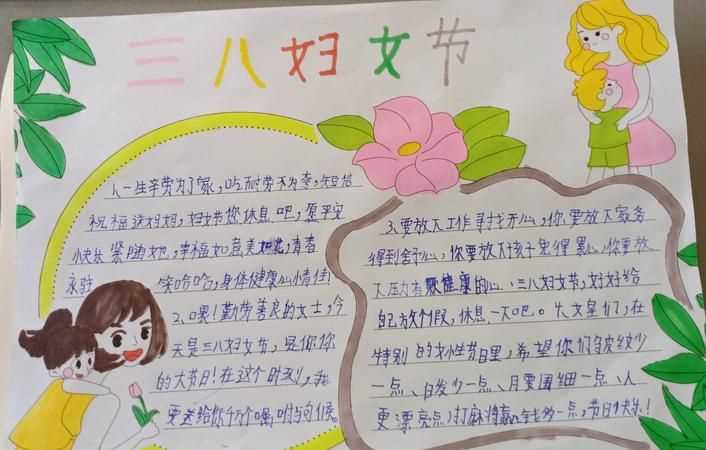 三八妇女节
1、一生辛劳为了家,吃耐劳不为奢,短信
祝福送妈妈,妇女节您休息吧,愿平安
快乐紧随她,幸福如意美,青春
永驻笑哈哈,身体健康心情佳!
2、嘿!勤劳善良的女士,今
天是三八妇女节,是你你
的大节日!在这个时刻,我
要送给你千万个嘱咐与问候。
3、要放下工作寻找开心,你要放下家务
得到舒心,你要放下孩子觉得累心,你要放
下压力有颗健康的心、三八妇女节,好好给
自己放个假,休息一下吧。4、女皇们,在
特别的女性节日里,希望你们皱纹少
一点、白发少一点、月要围细一点、人
更漂亮点,打麻将赢金钱多一点,节日快乐!